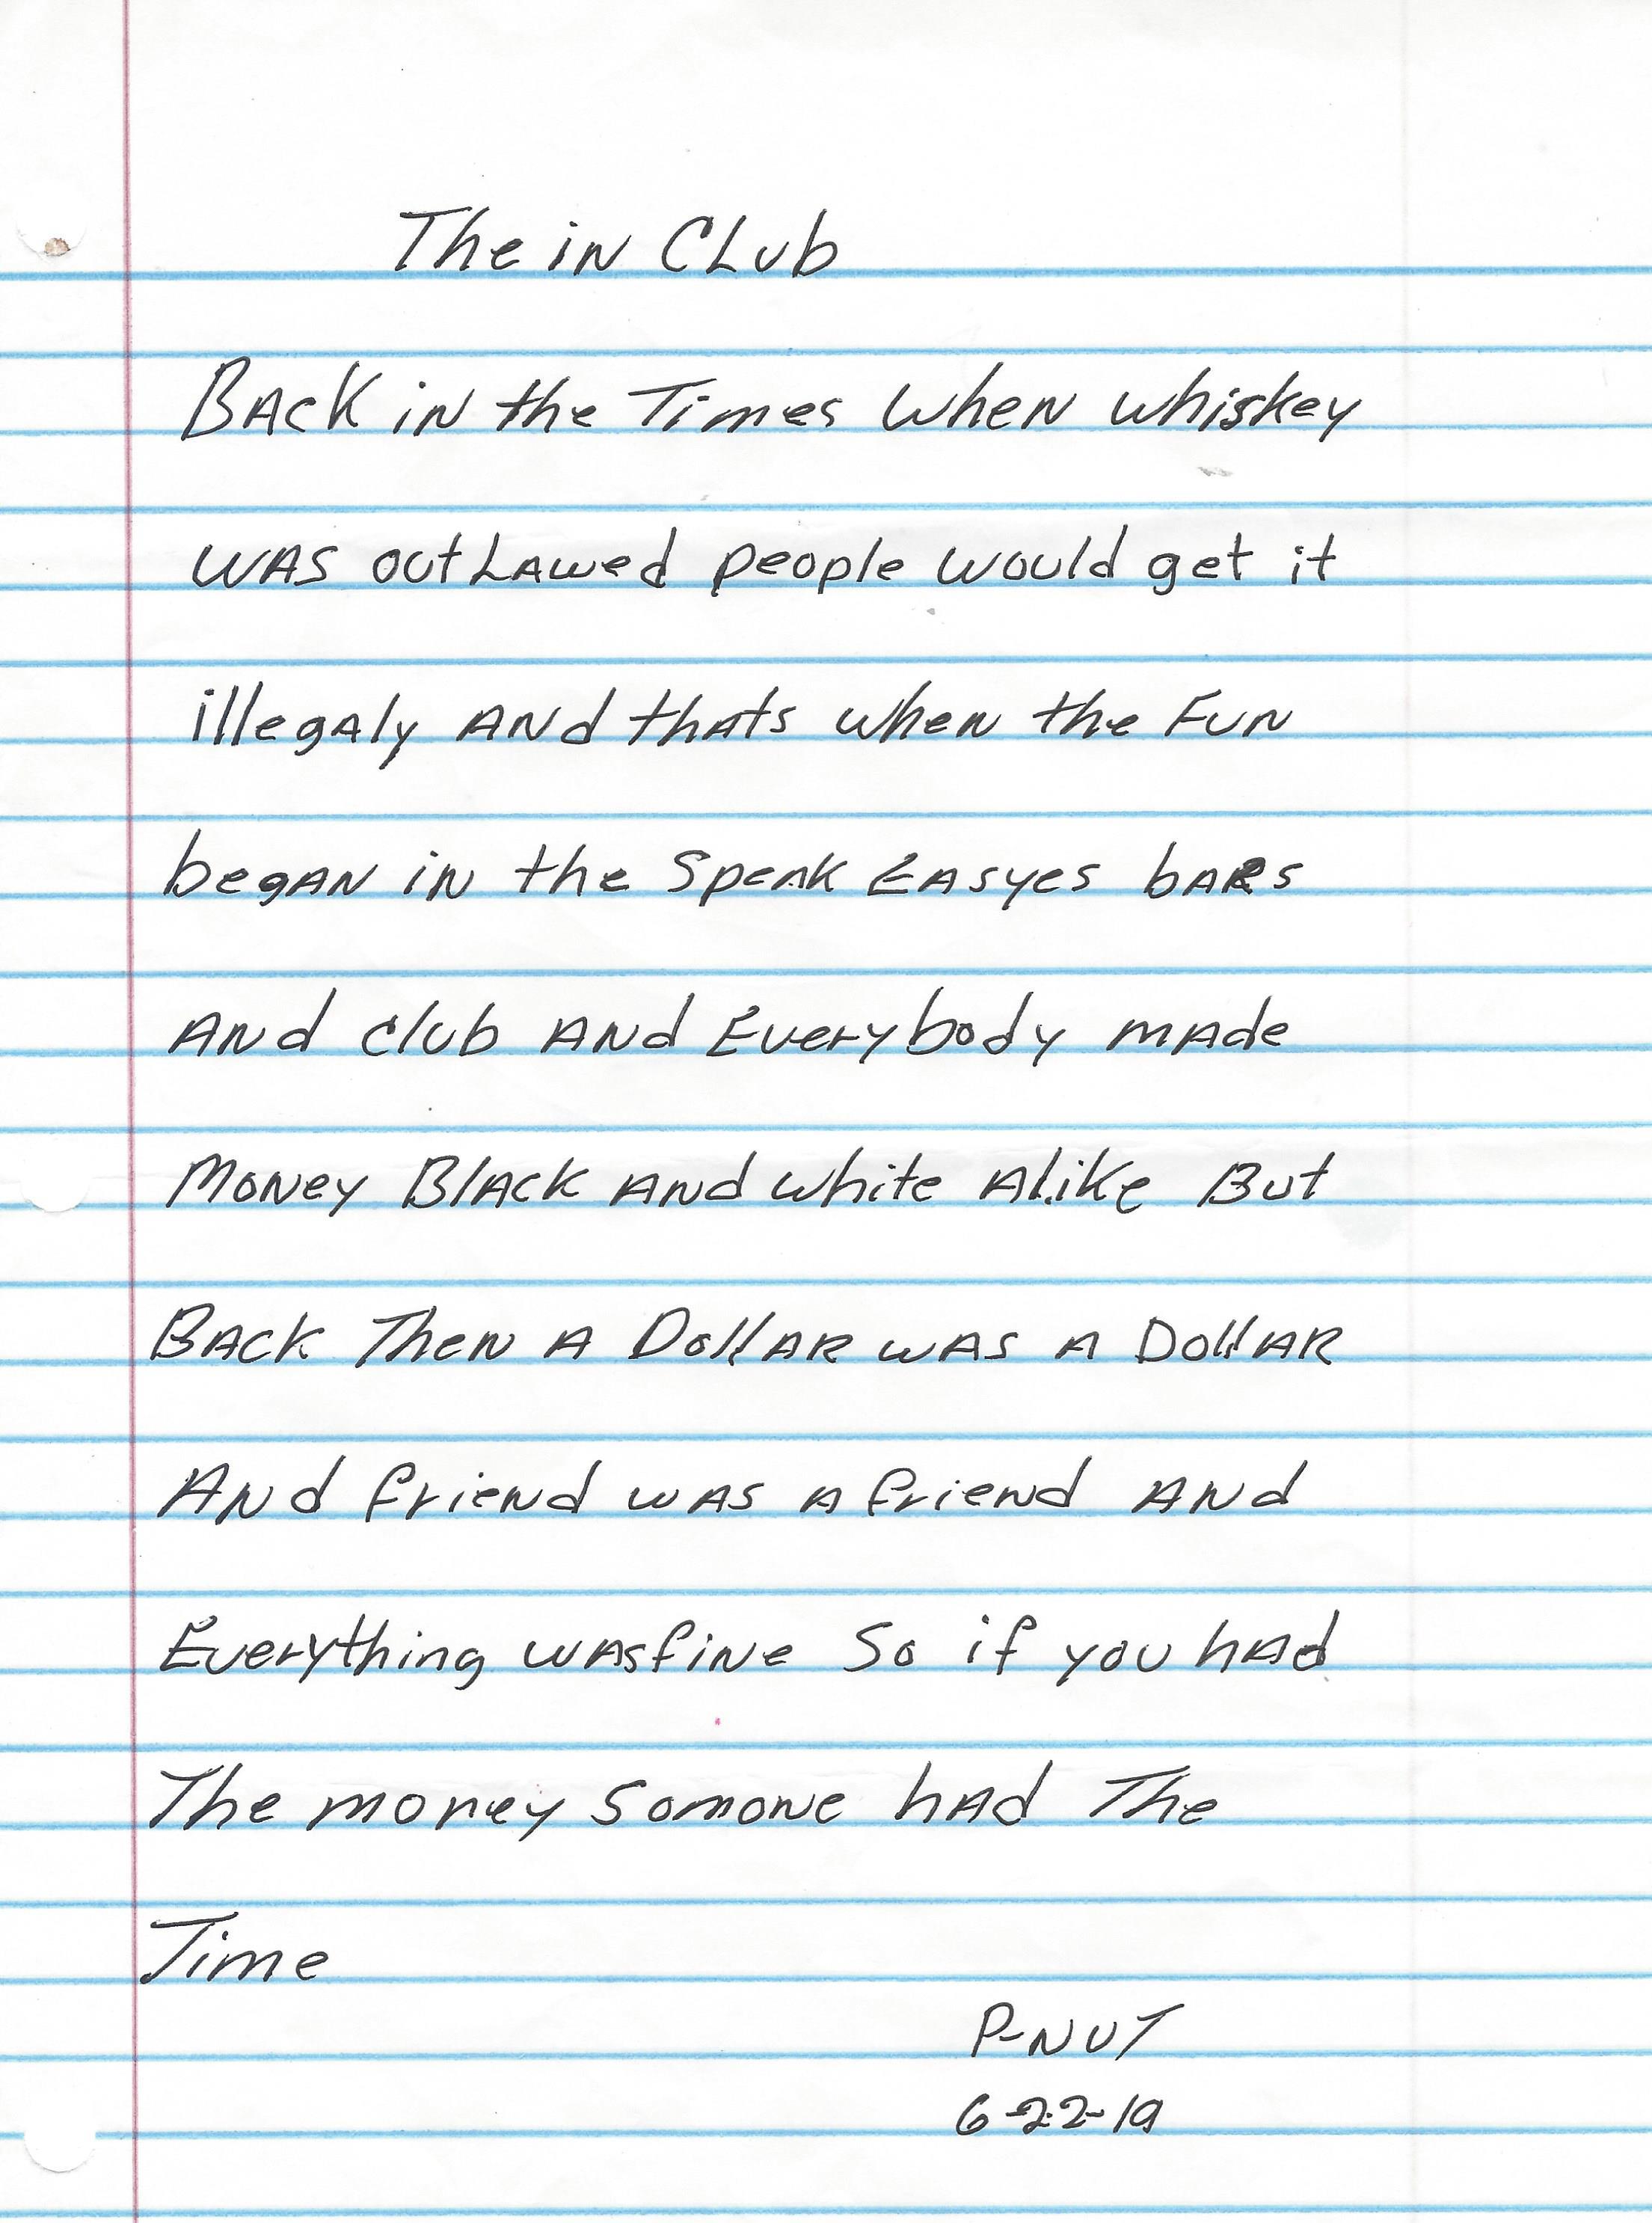 The in Club
Back in the Times when whiskey
was outLawed people would get it
illegaly and thats when the Fun
began in the Speak Easyes bars
And club and Everybody made
Money Black and white Alike But
Back Then A Dollar was a Dollar
And friend was a friend and
Everything wasfine So if you had
The money Somone had The
Time
P-NUT
6-22-19